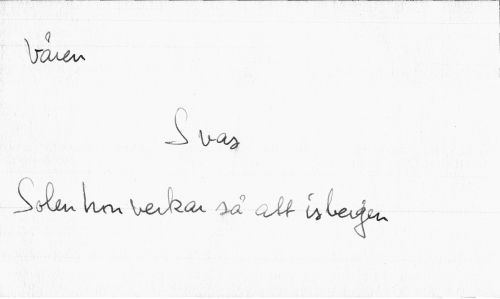 Våren
Svas
Solen hon verkar så att isbergen